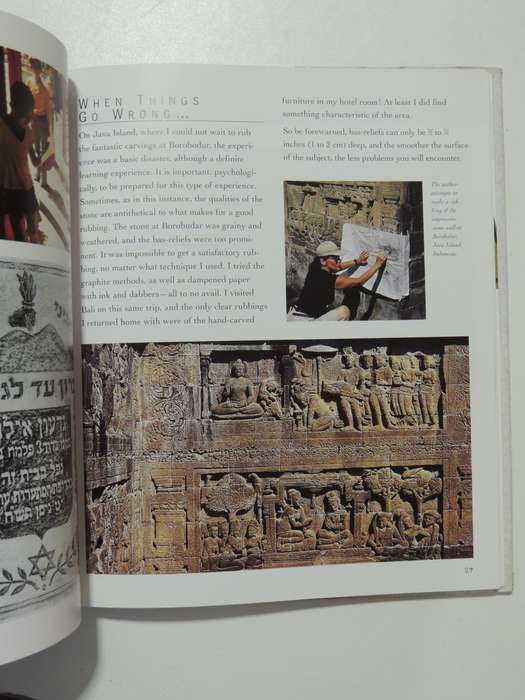 WHEN THINGS
GO WRONG...
On Java Island, where I could not wait to rub
the fantastic carvings at Borobudur, the experi-
ence was a basic disaster, although a definite
learning experience. It is important, psychologi-
cally, to be prepared for this type of experience.
Sometimes, as in this instance, the qualities of the
stone are antithetical to what makes for a good
rubbing. The stone at Borobudur was grainy and
weathered, and the bas-reliefs were too promi-
nent. It was impossible to get a satisfactory rub-
bing, no matter what technique I used. I tried the
graphite methods, as well as dampened paper
with ink and dabbers—all to no avail. I visited
Bali on this same trip, and the only clear rubbings
I returned home with were of the hand-carved
furniture in my hotel room! At least I did find
something characteristic of the area.
So be forewarned, bas-reliefs can only be to
inches (1 to 2 cm) deep, and the smoother the surface
of the subject, the less problems you will encounter.
The author
attempts to
make a rub-
bing of the
impressive
stone wall at
Borobudur,
Java Island,
Indonesia.
27